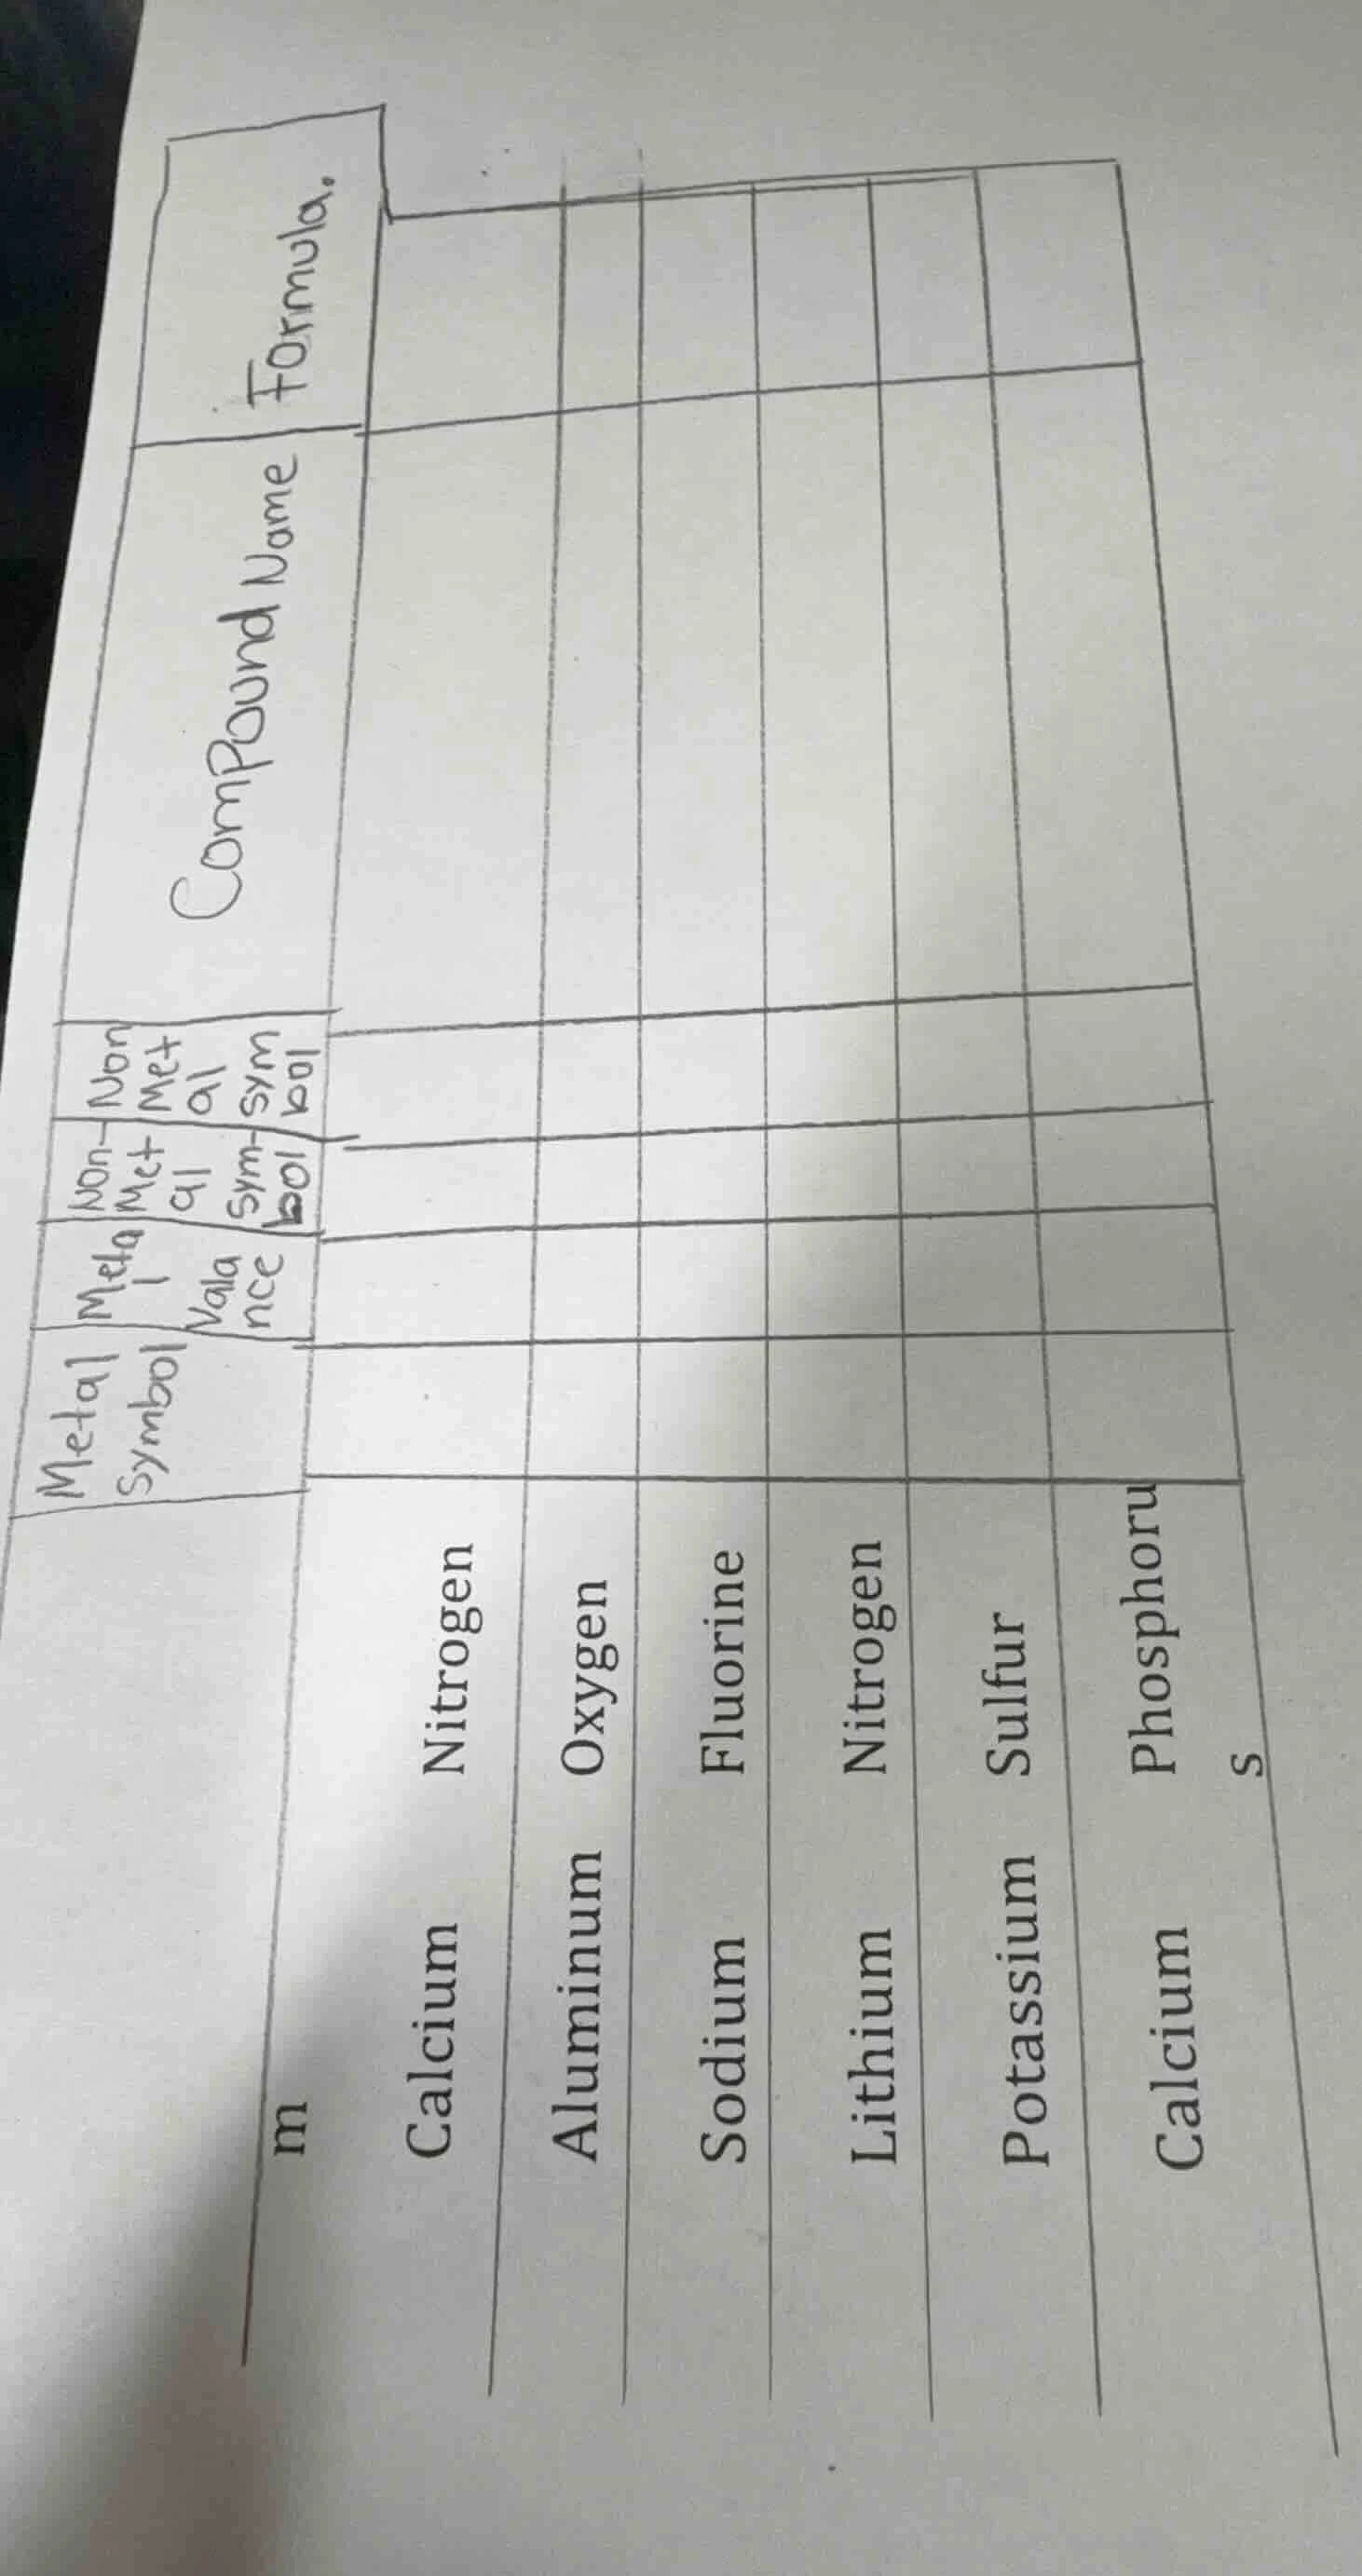 Metal
Symbol
Meta
l
Vala
nce
Non-
Met
al
Sym-
bol
Non
Met
al
Sym
bol
Compound Name
Formula.
m
Calcium Nitrogen
Aluminum Oxygen
Sodium Fluorine
Lithium Nitrogen
Potassium Sulfur
Calcium Phosphoru
s